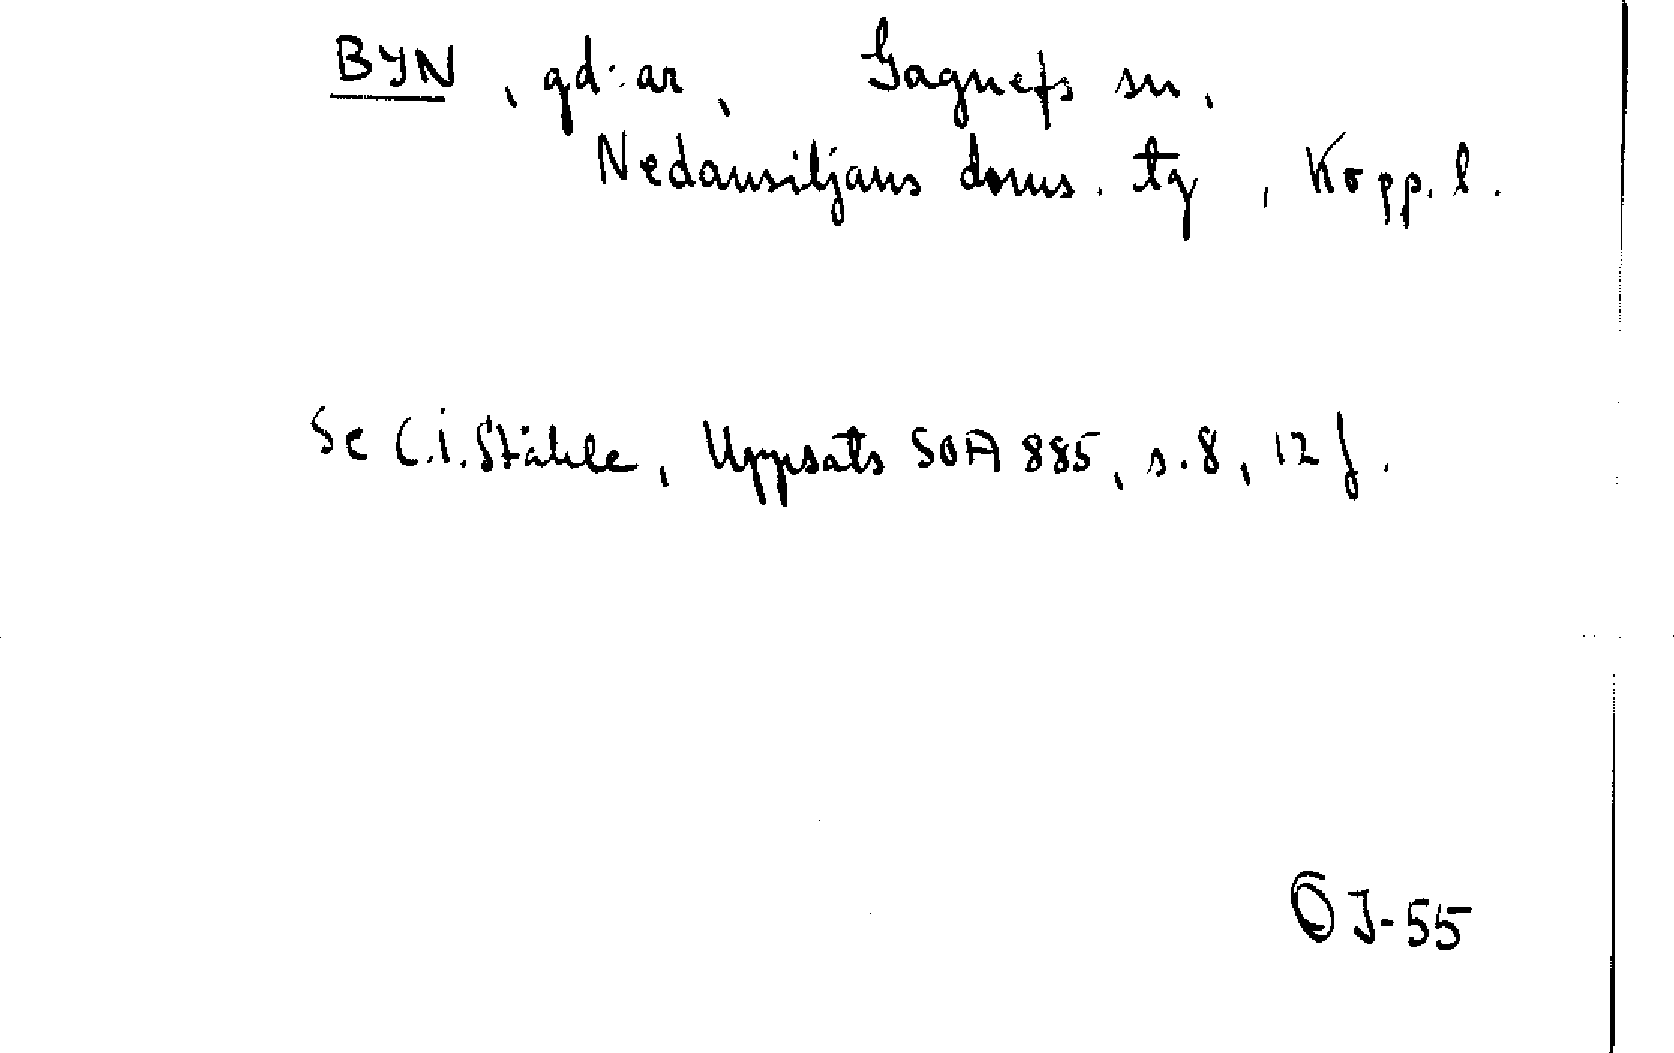 BYN, gd:ar, Gagnefs sn,
Nedansiljans doms. tg, Kopp. l.
Se C.I. Ståhle, Uppsats SOA 885, s. 8, 12 f.
OJ-55